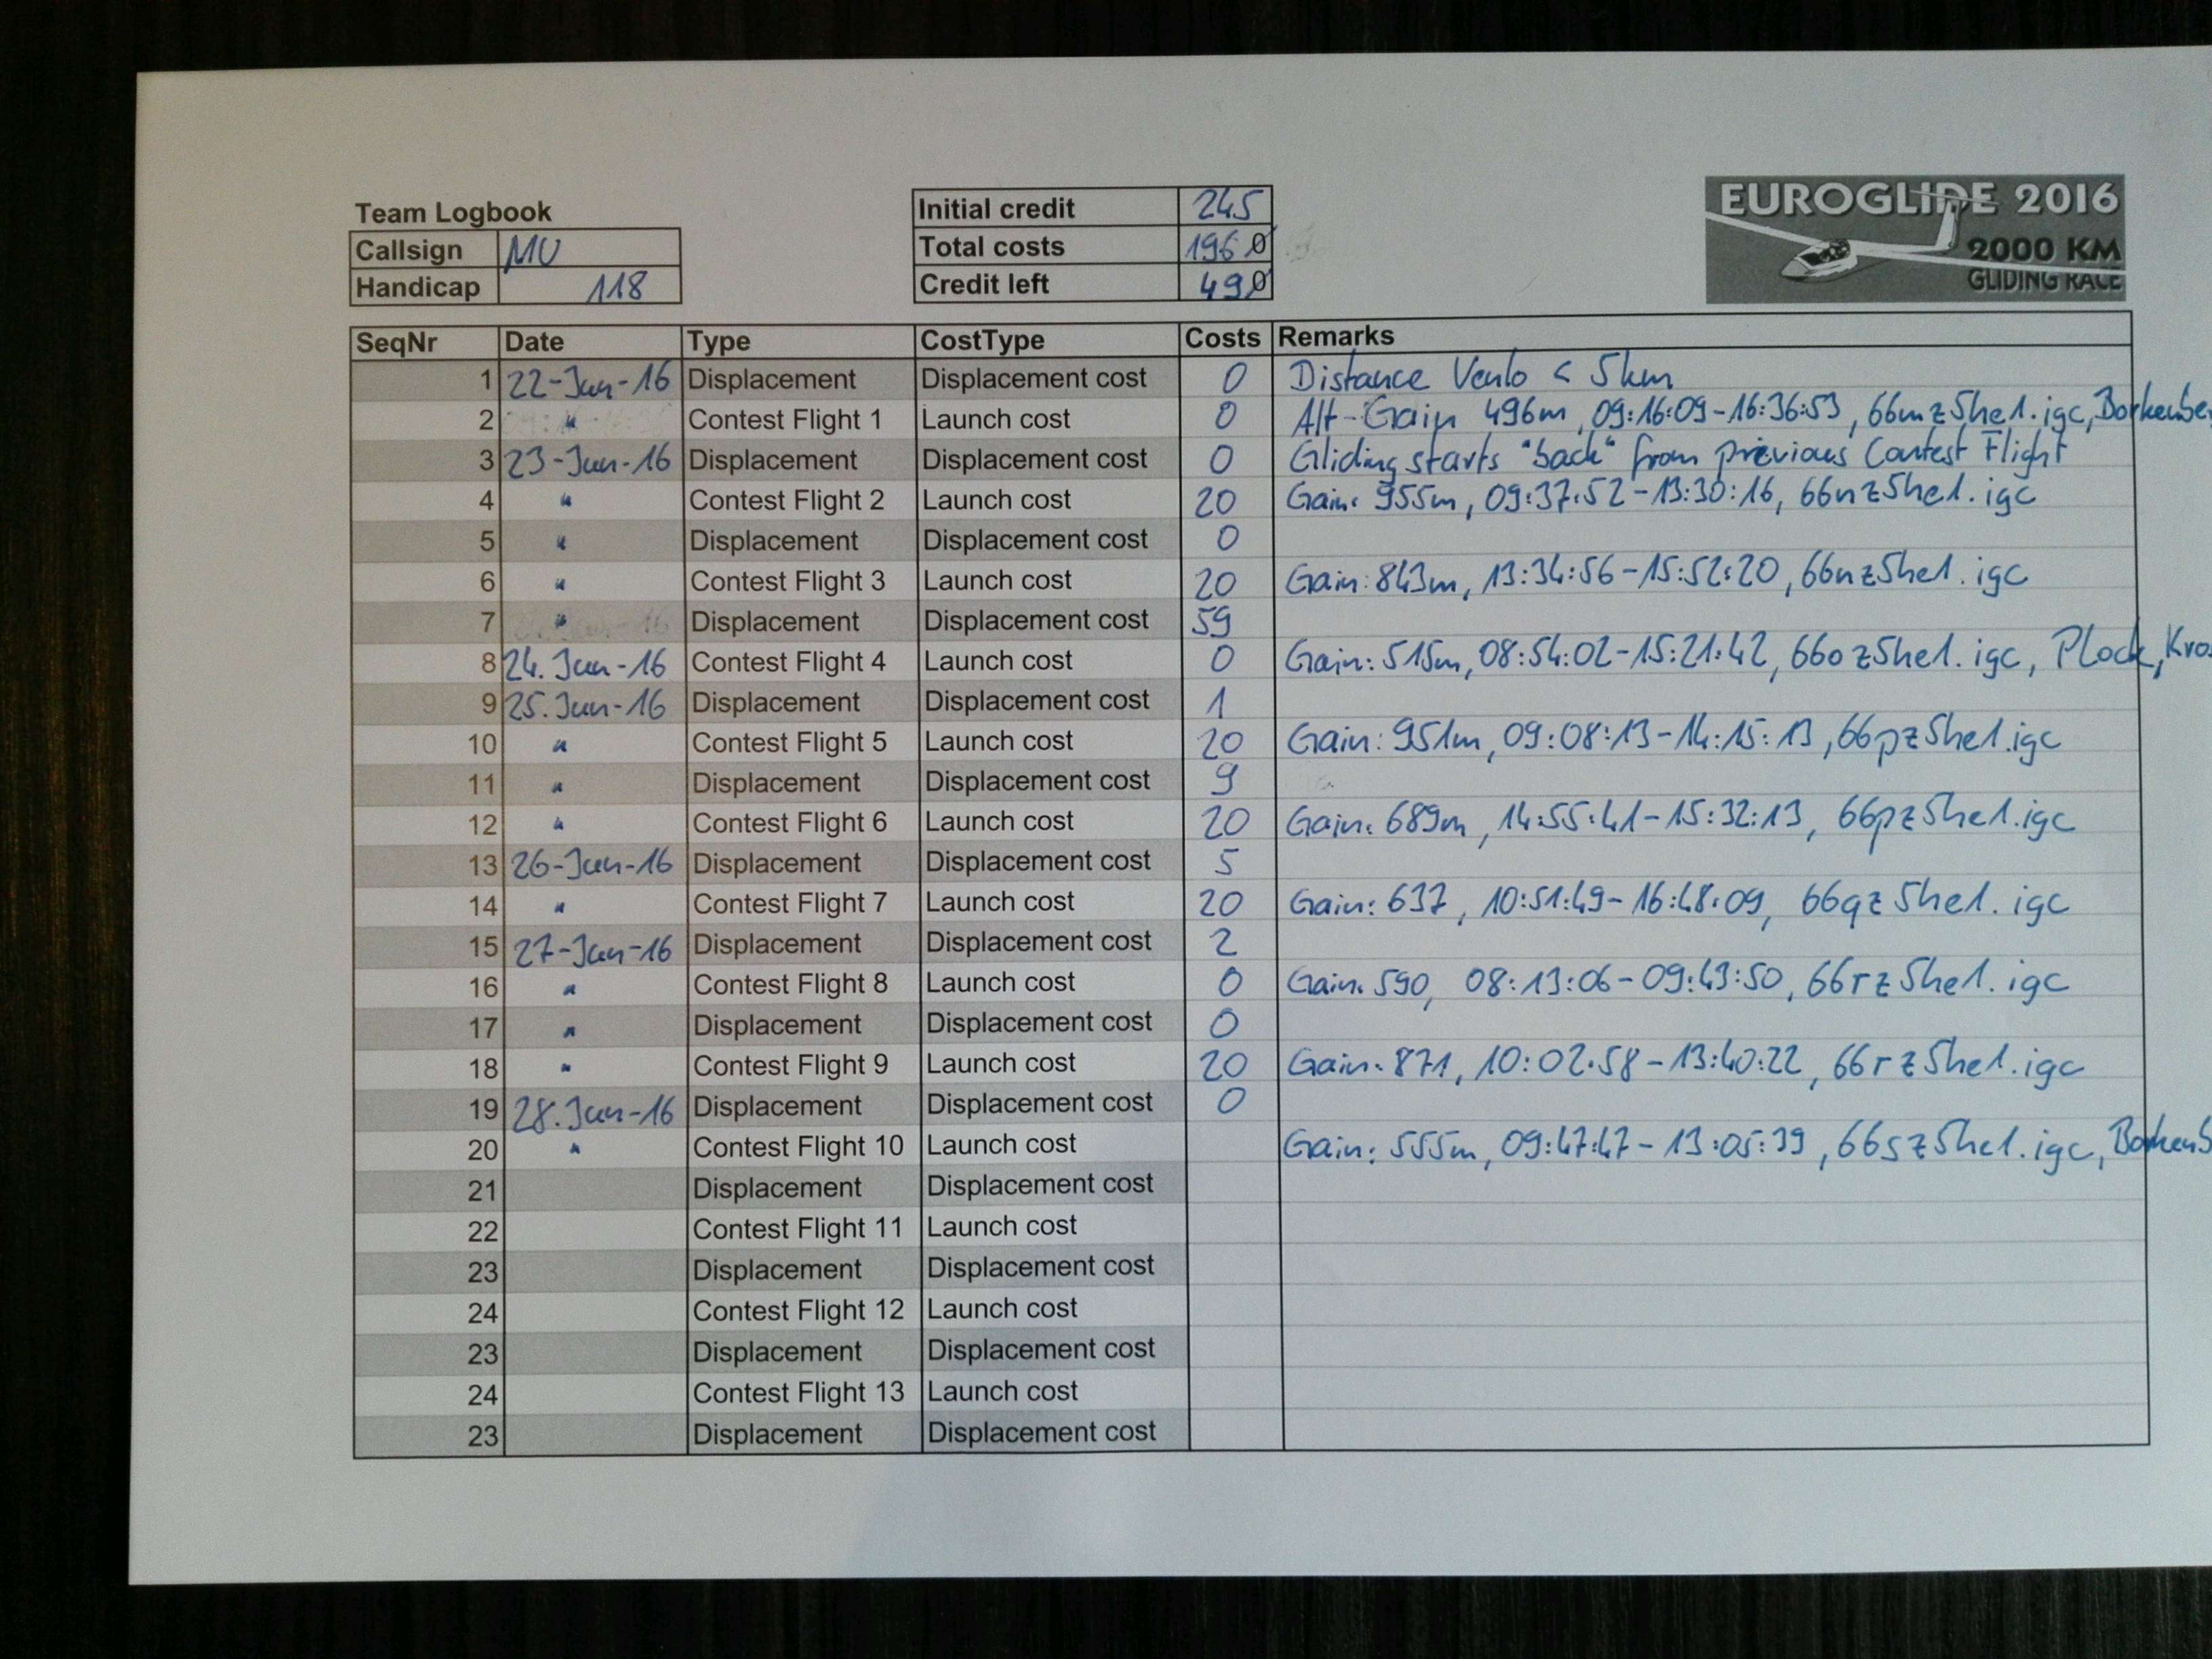 EUROGLIDE 2016
2000 KM
GLIDING RACE
Team Logbook
Callsign MU
Handicap 118
Initial credit 245
Total costs 196 0
Credit left 49 0
SeqNr Date Type CostType Costs Remarks
1 22-Jun-16 Displacement Displacement cost 0 Distance Venlo < 5km
2 " Contest Flight 1 Launch cost 0 Alt-Gain 496m, 09:16:09-16:36:53, 66mz5he1.igc, Borkenbe
3 23-Jun-16 Displacement Displacement cost 0 Gliding starts "back" from previous Contest Flight
4 " Contest Flight 2 Launch cost 20 Gain: 955m, 09:37:52-13:30:16, 66nz5he1.igc
5 " Displacement Displacement cost 0
6 " Contest Flight 3 Launch cost 20 Gain: 843m, 13:34:56-15:52:20, 66nz5he1.igc
7 " Displacement Displacement cost 59
8 24.Jun-16 Contest Flight 4 Launch cost 0 Gain: 515m, 08:54:02-15:21:42, 66oz5he1.igc, Plock, Kros
9 25.Jun-16 Displacement Displacement cost 1
10 " Contest Flight 5 Launch cost 20 Gain: 951m, 09:08:13-14:15:13, 66pz5he1.igc
11 " Displacement Displacement cost 9
12 " Contest Flight 6 Launch cost 20 Gain: 689m, 14:55:41-15:32:13, 66pz5he1.igc
13 26-Jun-16 Displacement Displacement cost 5
14 " Contest Flight 7 Launch cost 20 Gain: 637, 10:51:49-16:48:09, 66qz5he1.igc
15 27-Jun-16 Displacement Displacement cost 2
16 " Contest Flight 8 Launch cost 0 Gain: 590, 08:13:06-09:43:50, 66rz5he1.igc
17 " Displacement Displacement cost 0
18 " Contest Flight 9 Launch cost 20 Gain: 871, 10:02:58-13:40:22, 66rz5he1.igc
19 28.Jun-16 Displacement Displacement cost 0
20 " Contest Flight 10 Launch cost Gain: 555m, 09:47:47-13:05:39, 66sz5he1.igc, Borkenb
21 Displacement Displacement cost
22 Contest Flight 11 Launch cost
23 Displacement Displacement cost
24 Contest Flight 12 Launch cost
23 Displacement Displacement cost
24 Contest Flight 13 Launch cost
23 Displacement Displacement cost